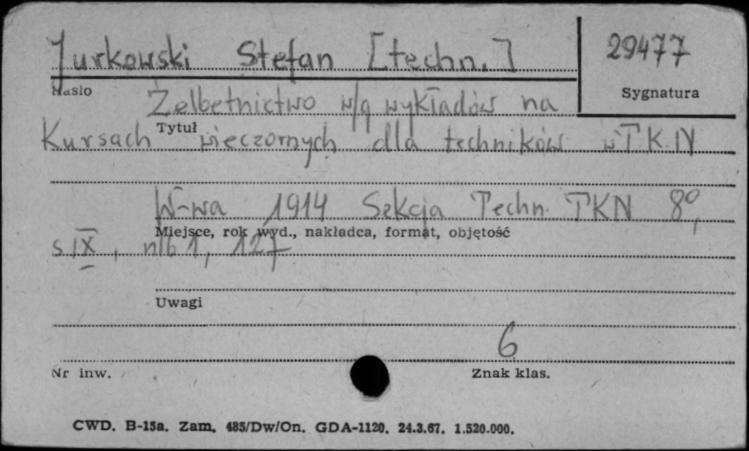 Jurkowski Stefan [techn.] 29477
Hasło Sygnatura
Żelbetnictwo w/g wykładów na
Tytuł
Kursach wieczornych dla techników w TKN
W-wa 1914 Sekcja Techn. TKN 8°,
Miejsce, rok wyd., nakładca, format, objętość
s. IX, nlb 1, 127
Uwagi
6
Nr inw. Znak klas.
CWD. B-15a. Zam. 485/Dw/On. GDA-1120. 24.3.67. 1.520.000.